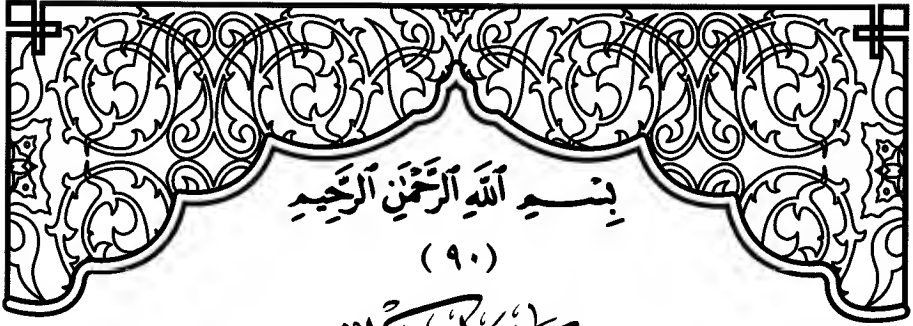 بِسْمِ ٱللَّهِ ٱلرَّحْمَٰنِ ٱلرَّحِيمِ
(٩٠)